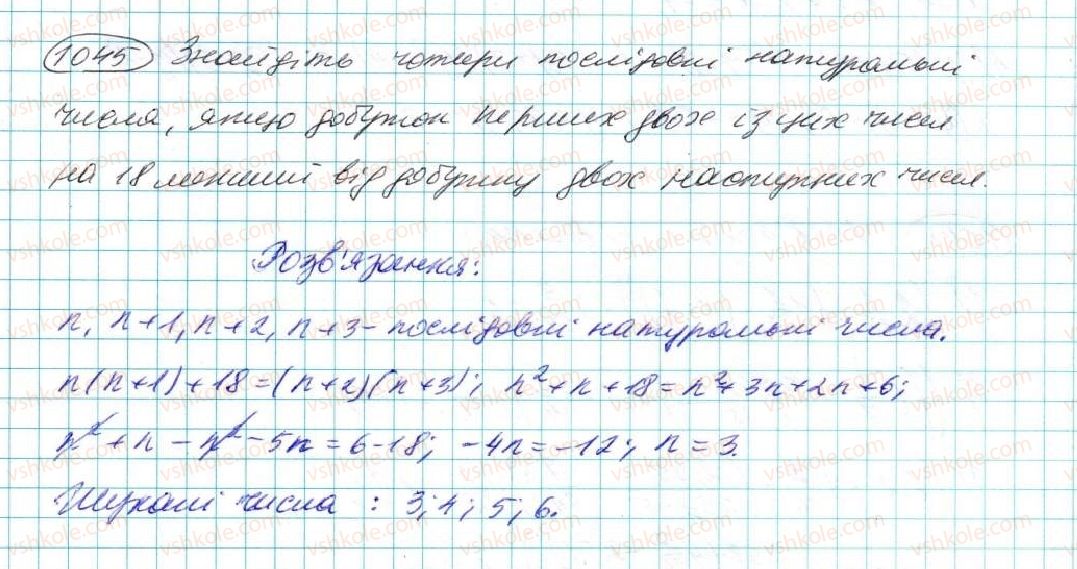 1045 Знайдіть чотири послідовні натуральні
числа, якщо добуток перших двох із цих чисел
на 18 менший від добутку двох наступних чисел.
Розв'язання:
n, n+1, n+2, n+3 - послідовні натуральні числа.
n(n+1)+18=(n+2)(n+3); n²+n+18=n²+3n+2n+6;
n²+n-n²-5n=6-18; -4n=-12; n=3.
Шукані числа : 3; 4; 5; 6.